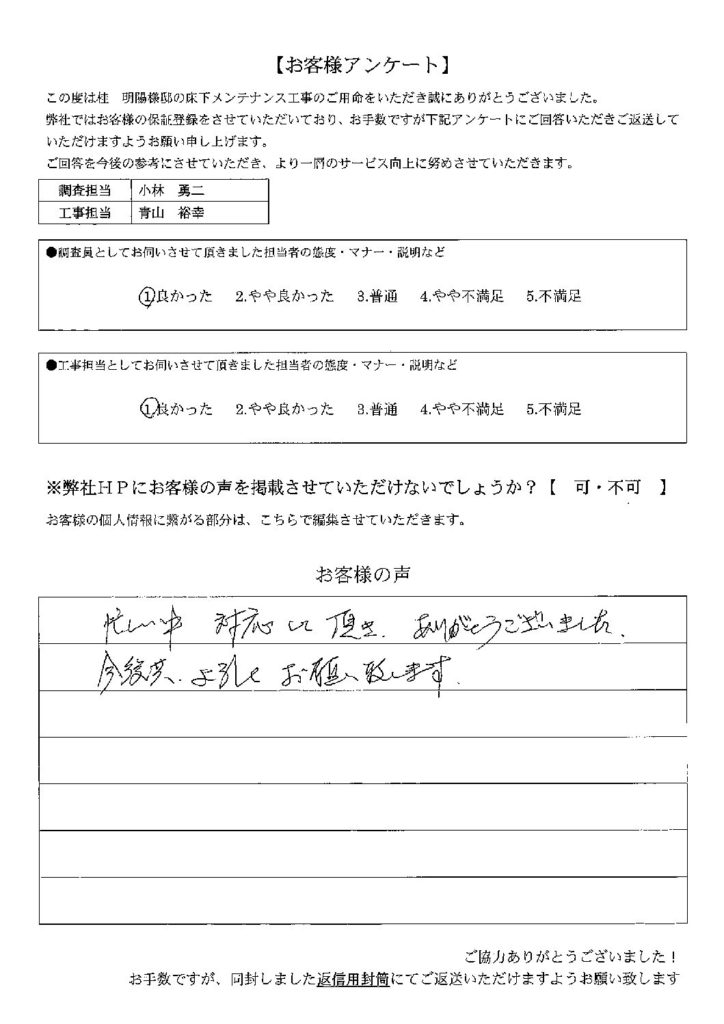 【お客様アンケート】
この度は桂　明陽様邸の床下メンテナンス工事のご用命をいただき誠にありがとうございました。
弊社ではお客様の保証登録をさせていただいており、お手数ですが下記アンケートにご回答いただきご返送して
いただけますようお願い申し上げます。
ご回答を今後の参考にさせていただき、より一層のサービス向上に努めさせていただきます。
調査担当　小林　勇二
工事担当　青山　裕幸
●調査員としてお伺いさせて頂きました担当者の態度・マナー・説明など
1.良かった　2.やや良かった　3.普通　4.やや不満足　5.不満足
●工事担当としてお伺いさせて頂きました担当者の態度・マナー・説明など
1.良かった　2.やや良かった　3.普通　4.やや不満足　5.不満足
※弊社ＨＰにお客様の声を掲載させていただけないでしょうか？【　可・不可　】
お客様の個人情報に繋がる部分は、こちらで編集させていただきます。
お客様の声
忙しい中　対応して頂き、ありがとうございました。
今後共、よろしくお願い致します。
ご協力ありがとうございました！
お手数ですが、同封しました返信用封筒にてご返送いただけますようお願い致します